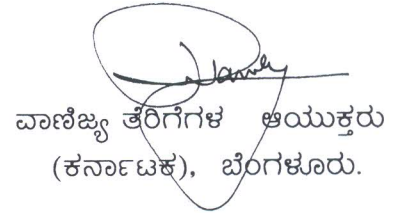 ವಾಣಿಜ್ಯ ತೆರಿಗೆಗಳ ಆಯುಕ್ತರು
(ಕರ್ನಾಟಕ), ಬೆಂಗಳೂರು.